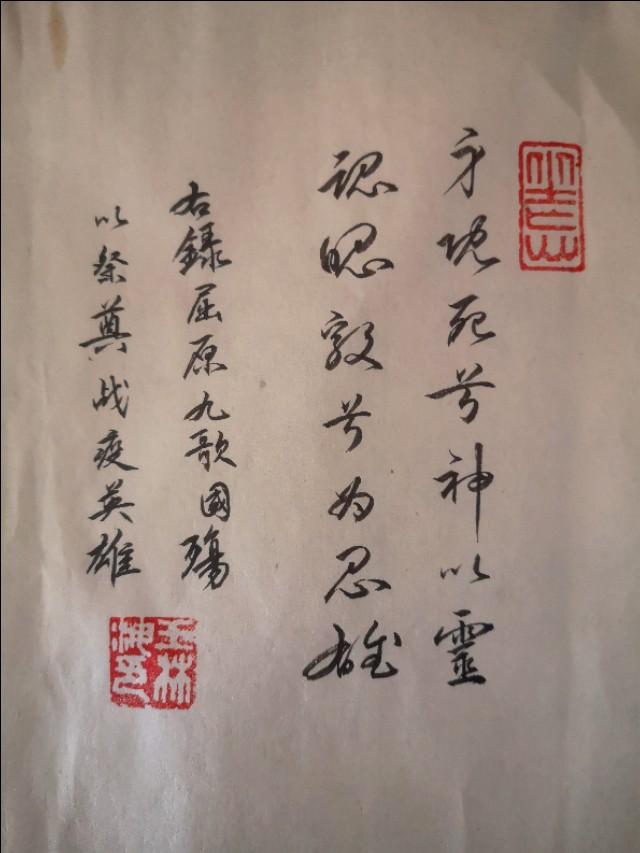 身既死兮神以靈
魂魄毅兮为鬼雄
右録屈原九歌國殤
以祭奠战疫英雄